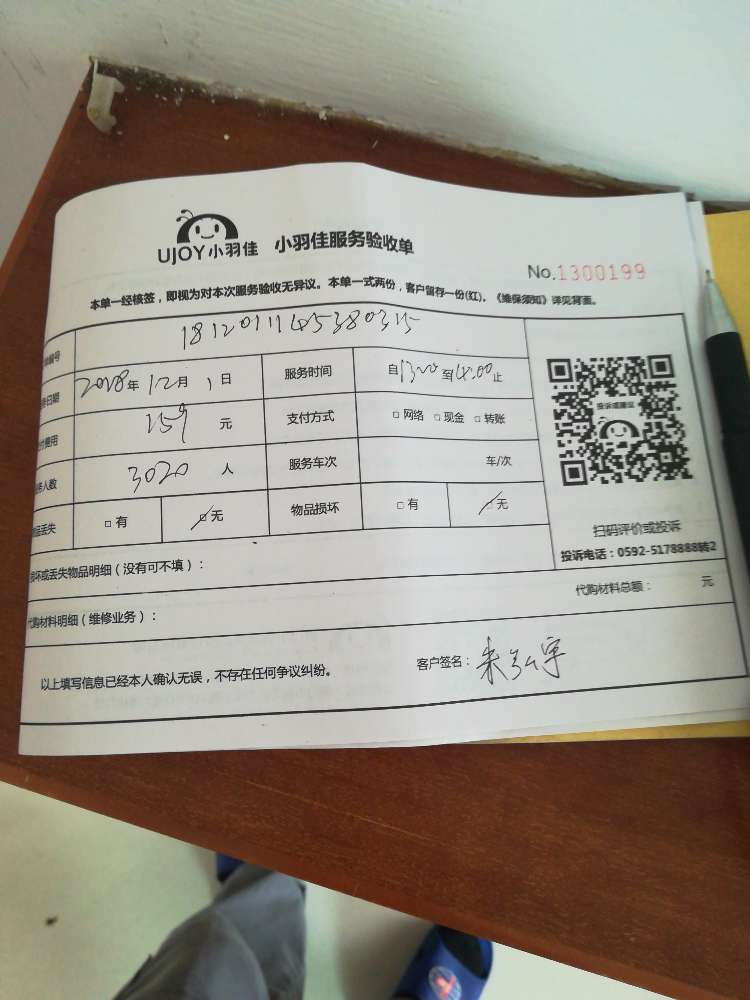 UJOY小羽佳 小羽佳服务验收单
No.1300199
本单一经核签，即视为对本次服务验收无异议。本单一式两份，客户留存一份(红)。《维保须知》详见背面。
编号 1812011145380315
日期 2018年12月1日 服务时间 自1300至4:00止
费用 159元 支付方式 □网络 □现金 □转账
人数 3020人 服务车次 车/次
物品丢失 □有 □无 物品损坏 □有 □无
投诉或建议
扫码评价或投诉
投诉电话：0592-5178888转2
损坏或丢失物品明细（没有可不填）：
代购材料明细（维修业务）： 代购材料总额： 元
以上填写信息已经本人确认无误，不存在任何争议纠纷。 客户签名：朱弘宇